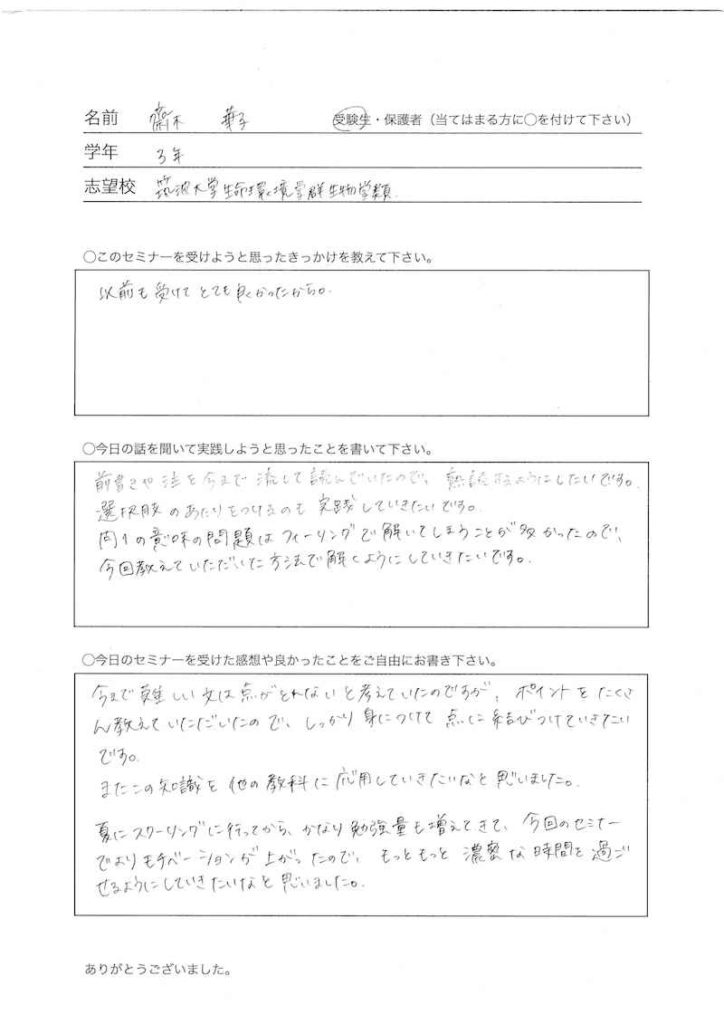 名前 齋木 華子 受験生・保護者（当てはまる方に○を付けて下さい）
学年 3年
志望校 筑波大学生命環境学群生物学類
○このセミナーを受けようと思ったきっかけを教えて下さい。
以前も受けてとても良かったから。
○今日の話を聞いて実践しようと思ったことを書いて下さい。
前書きや注を今まで流して読んでいたので、熟読するようにしたいです。
選択肢のあたりをつけるのも実践していきたいです。
問1の意味の問題はフィーリングで解いてしまうことが多かったので、
今回教えていただいた方法で解くようにしていきたいです。
○今日のセミナーを受けた感想や良かったことをご自由にお書き下さい。
今まで難しい文は点がとれないと考えていたのですが、ポイントをたくさ
ん教えていただいたので、しっかり身につけて点に結びつけていきたい
です。
またこの知識を他の教科に応用していきたいなと思いました。
夏にスクーリングに行ってから、かなり勉強量も増えてきて、今回のセミナー
でよりモチベーションが上がったので、もっともっと濃密な時間を過ご
せるようにしていきたいなと思いました。
ありがとうございました。